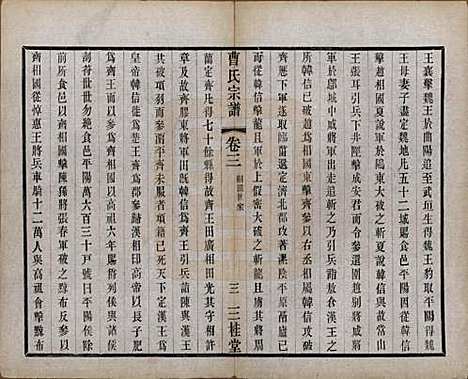 王襄擊魏王於曲陽追至武垣生得魏王豹取平陽得魏
王母妻子盡定魏地凡五十二城賜食邑平陽因從韓信
擊趙相國夏說軍於鄔東大破之斬夏說韓信與故常山
王張耳引兵下井陘擊成安君而令參還圍趙別將戚將
軍於鄔城中戚將軍出走追斬之乃引兵詣敖倉漢王之
所韓信已破趙為相國東擊齊參以右丞相屬韓信攻破
齊歷下軍遂取臨菑還定濟北郡攻著漯陰平原鬲盧已
而從韓信擊龍且軍於上假密大破之斬龍且虜其將軍周
曹氏宗譜
卷三
相國世家
三
三桂堂
蘭定齊凡得七十餘縣得故齊王田廣相田光其守相許
章及故齊膠東將軍田既韓信為齊王引兵詣陳與漢王
共破項羽而參留平齊未服者項籍已死天下定漢王為
皇帝韓信徙為楚王齊為郡參歸漢相印高帝以長子肥
為齊王而以參為齊相國以高祖六年賜爵列侯與諸侯
剖符世世勿絕食邑平陽萬六百三十戶號曰平陽侯除
前所食邑以齊相國擊陳豨將張春軍破之黥布反參以
齊相國從悼惠王將兵車騎十二萬人與高祖會擊黥布